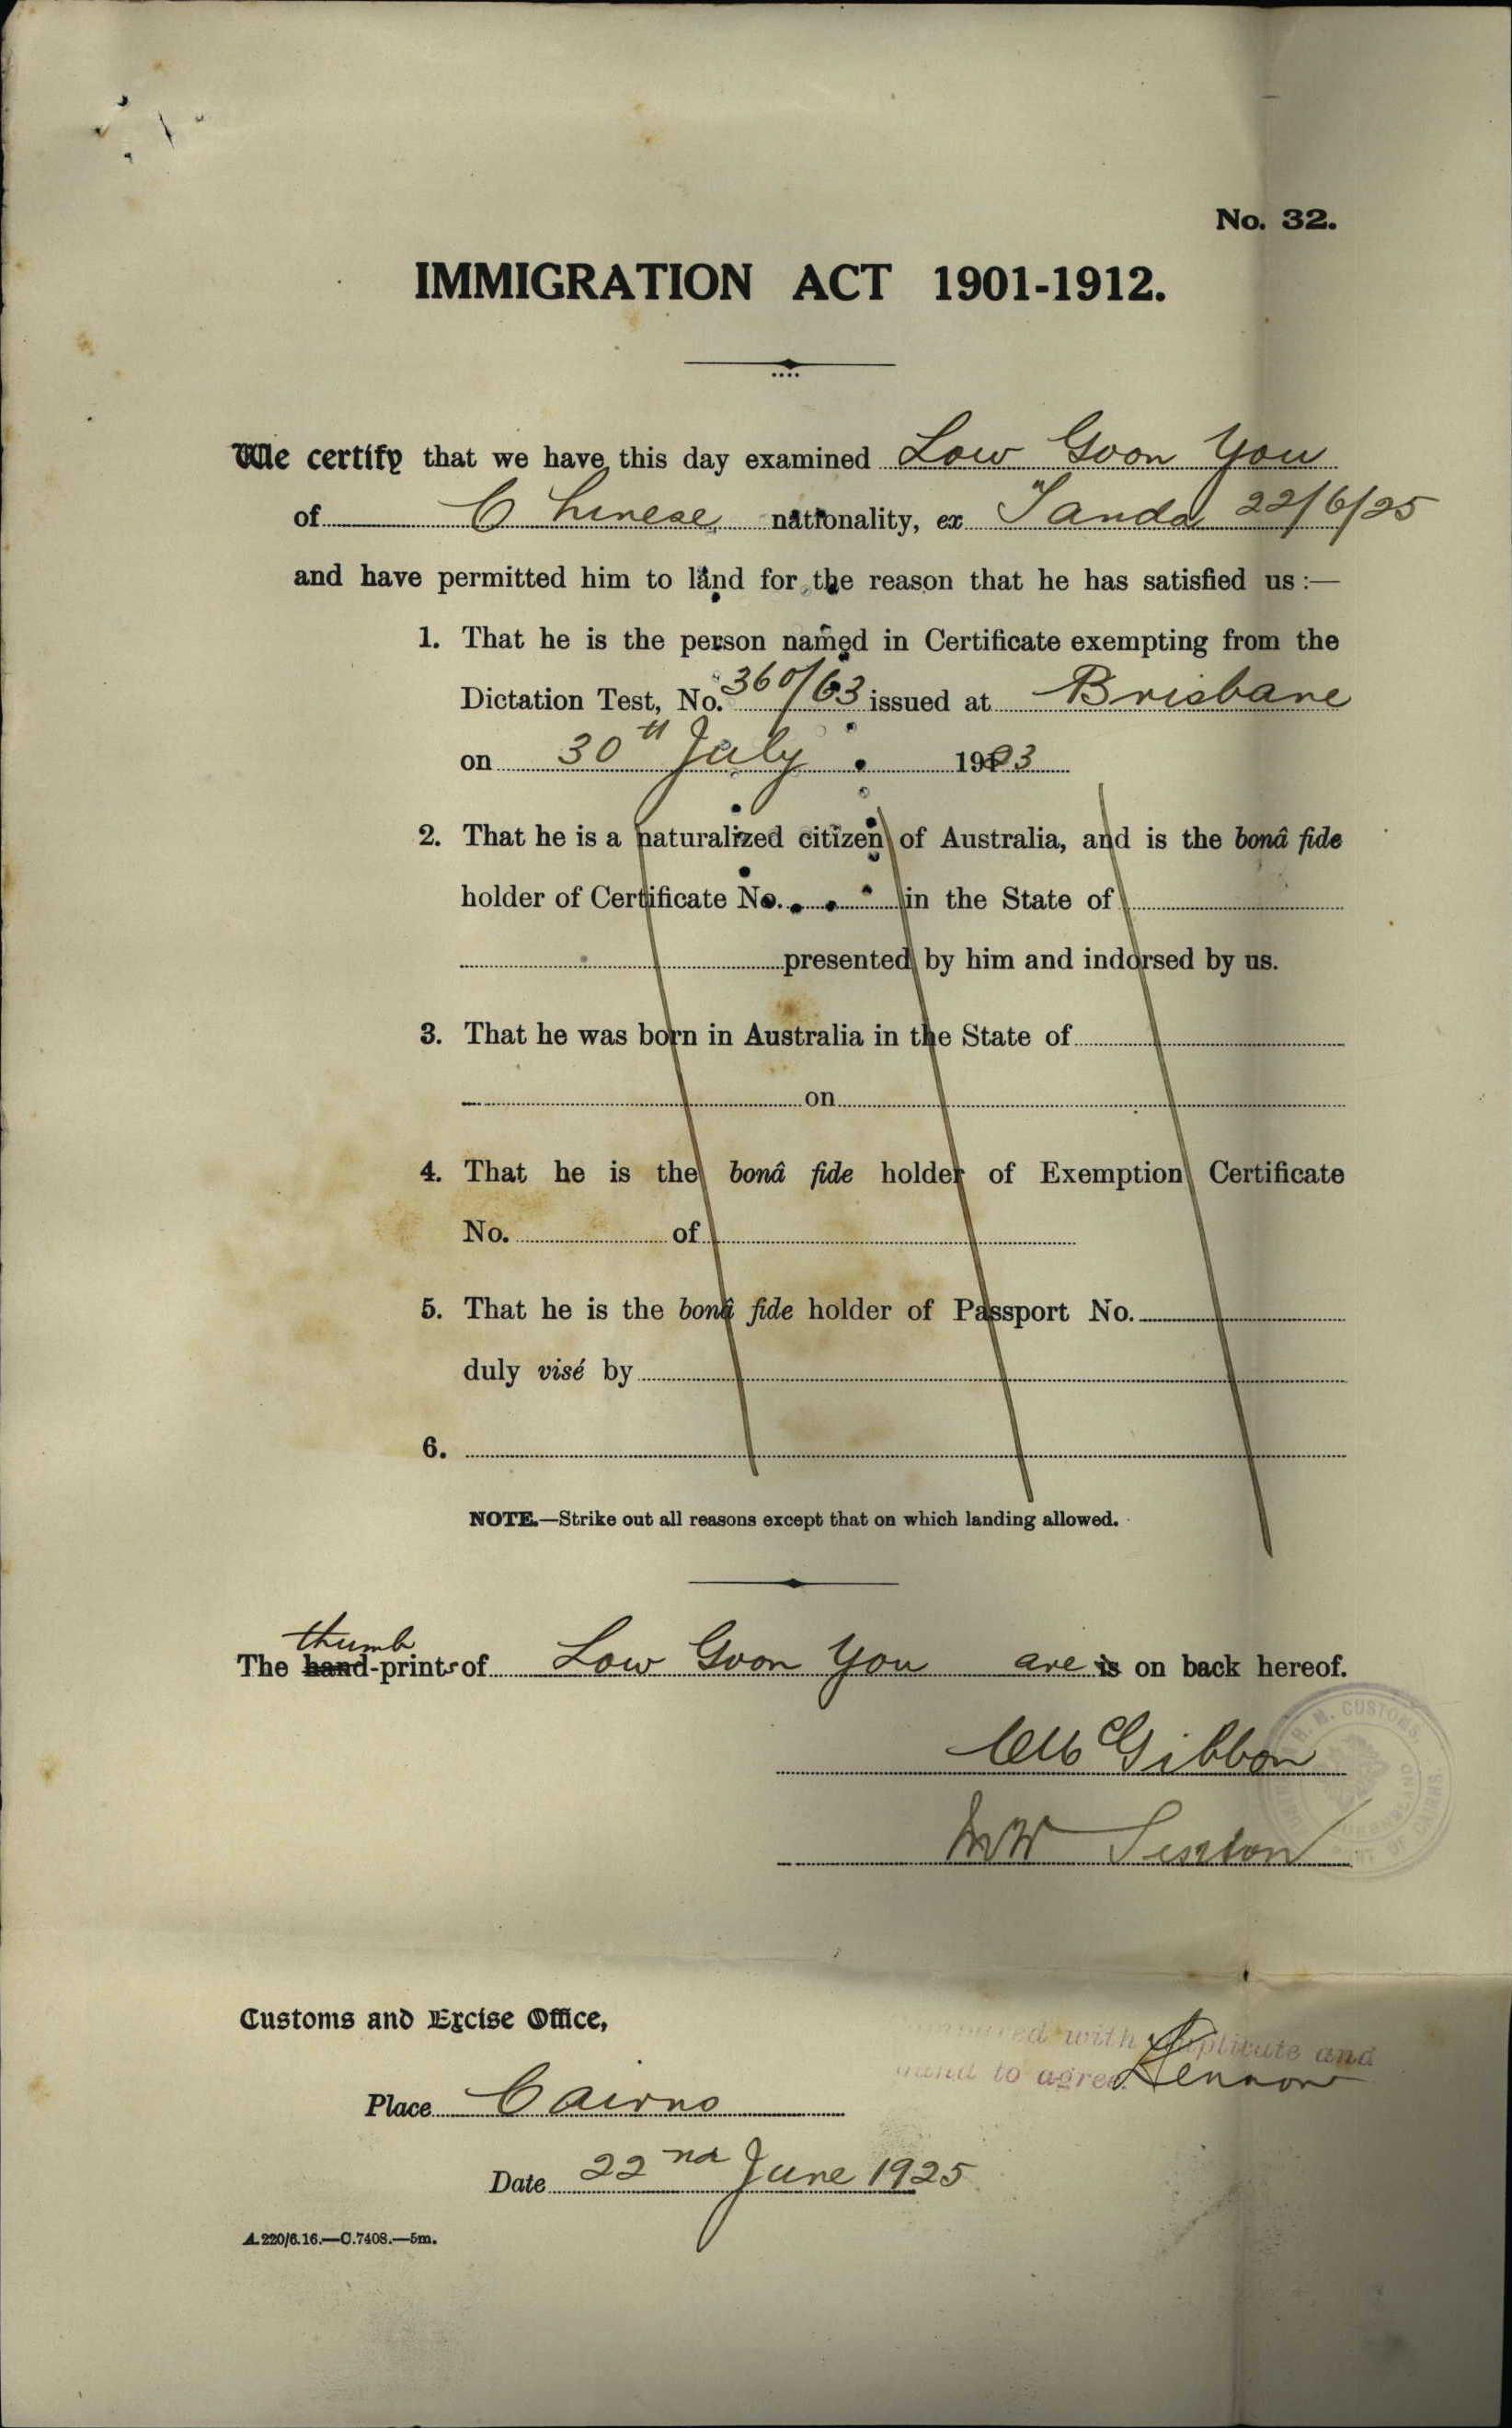 No. 32.
IMMIGRATION ACT 1901-1912.
We certify that we have this day examined Low Goon You
of Chinese nationality, ex Tanda 22/6/25
and have permitted him to land for the reason that he has satisfied us :—
1. That he is the person named in Certificate exempting from the
Dictation Test, No. 360/63 issued at Brisbane
on 30th July 1923
2. That he is a naturalized citizen of Australia, and is the bonâ fide
holder of Certificate No. in the State of
presented by him and indorsed by us.
3. That he was born in Australia in the State of
on
4. That he is the bonâ fide holder of Exemption Certificate
No. of
5. That he is the bonâ fide holder of Passport No.
duly visé by
6.
NOTE.—Strike out all reasons except that on which landing allowed.
thumb
The hand-prints of Low Goon You are is on back hereof.
Gibbon
H. M. CUSTOMS
CAIRNS
Customs and Excise Office,
with duplicate and
to agree. Lennon
Place Cairns
Date 22nd June 1925
A.220/6.16.—C.7408.—5m.